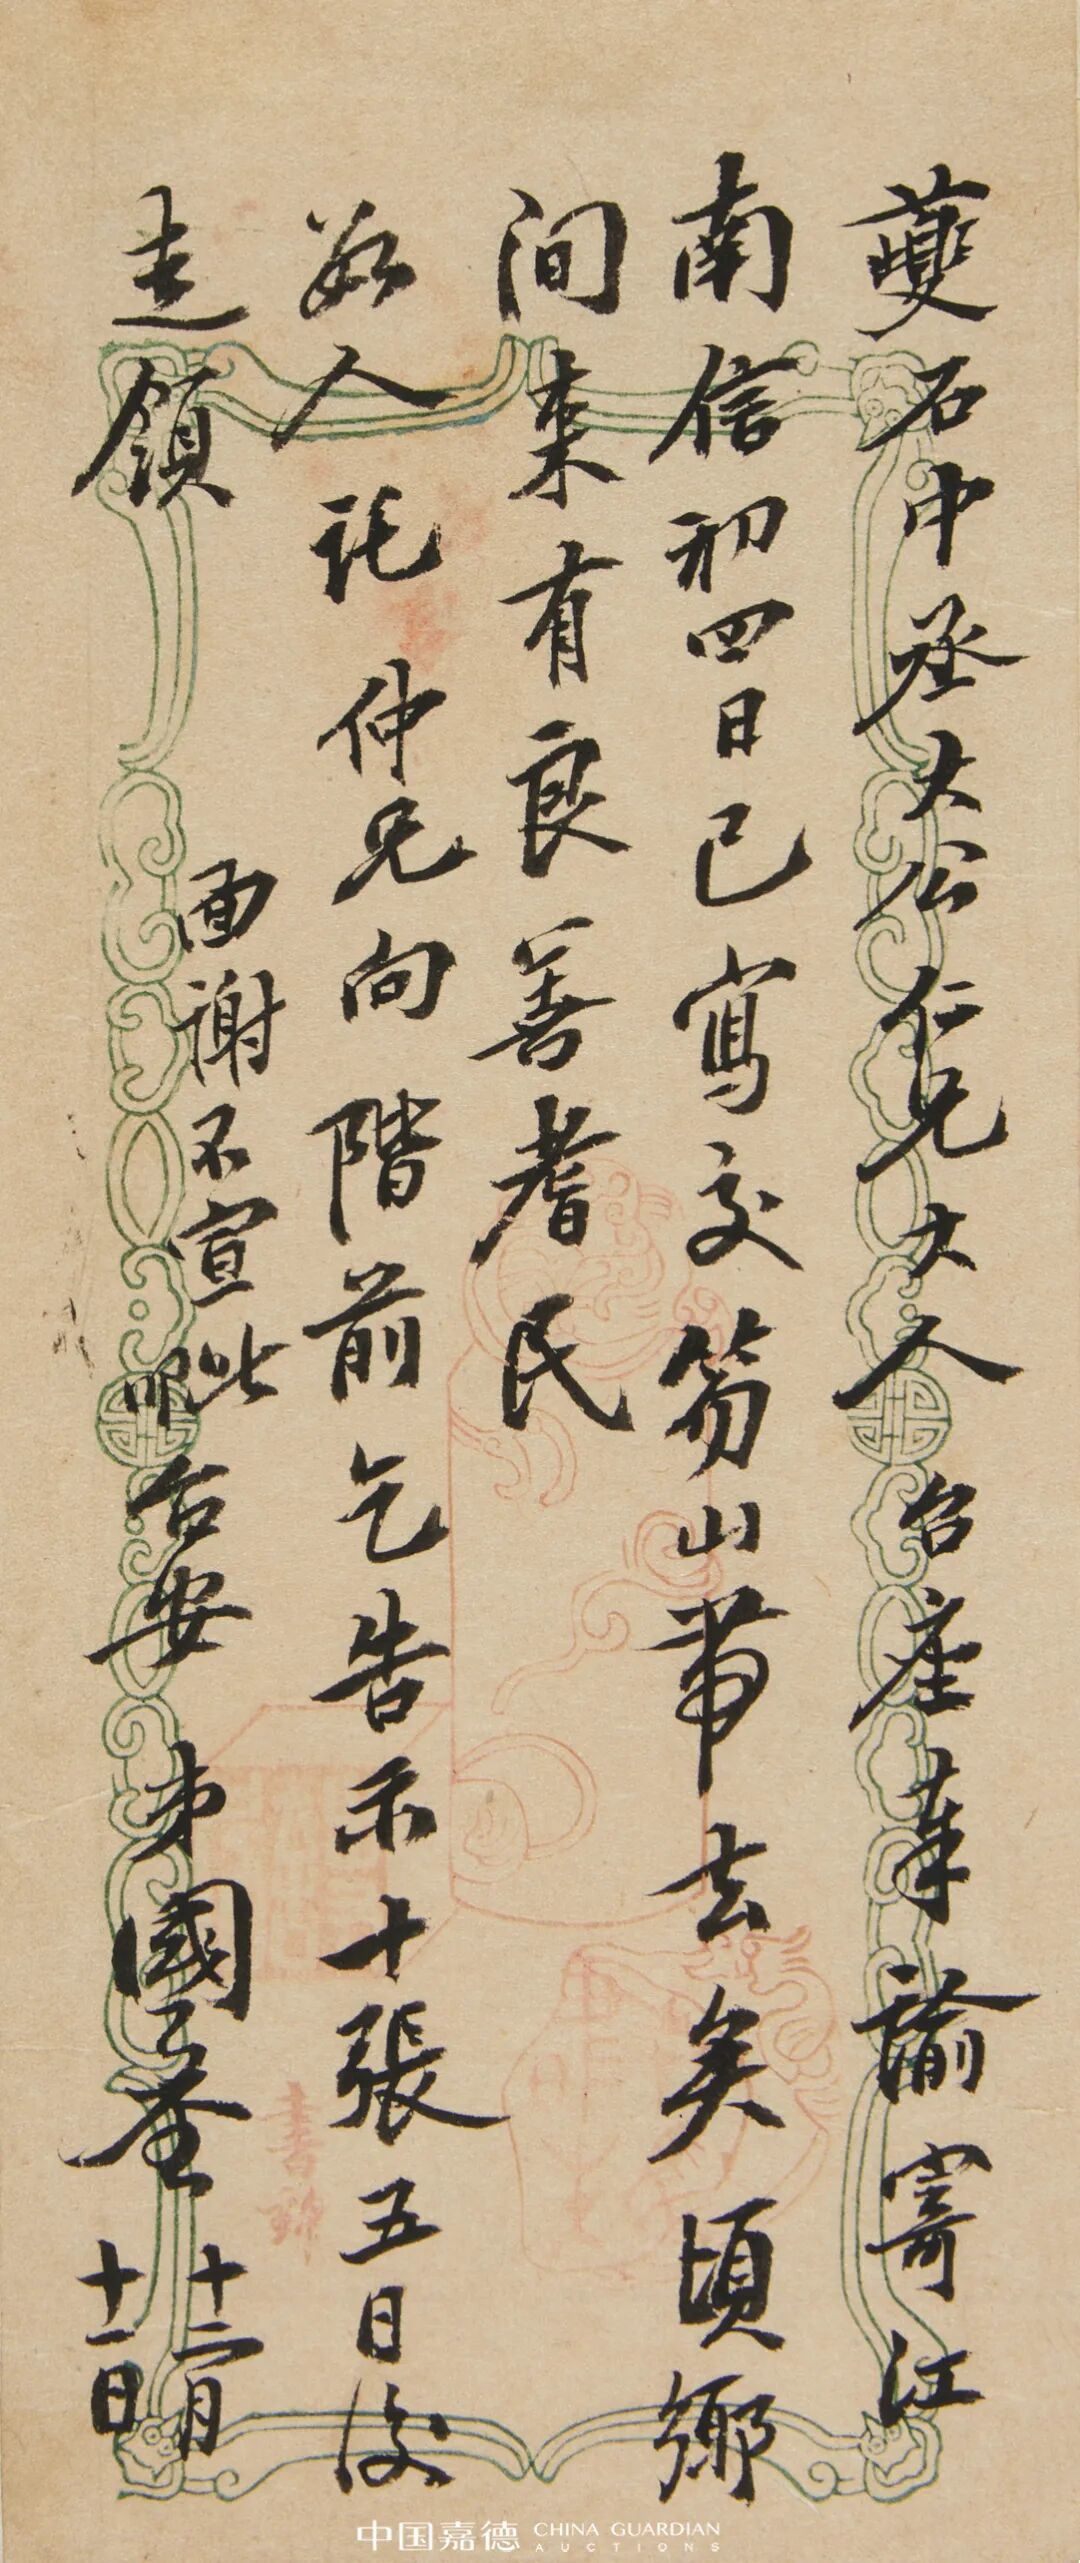 夔石中丞大公仁兄大人台座奉諭寄江
南信初四日已寫交笏山带去矣頃鄉
间来有良善耆民
数人託仲兄向階前乞告示十張五日後
走領
面謝不宣此
叩台安弟國荃十二月
十一日
書錦
中国嘉德 CHINA GUARDIAN
AUCTIONS